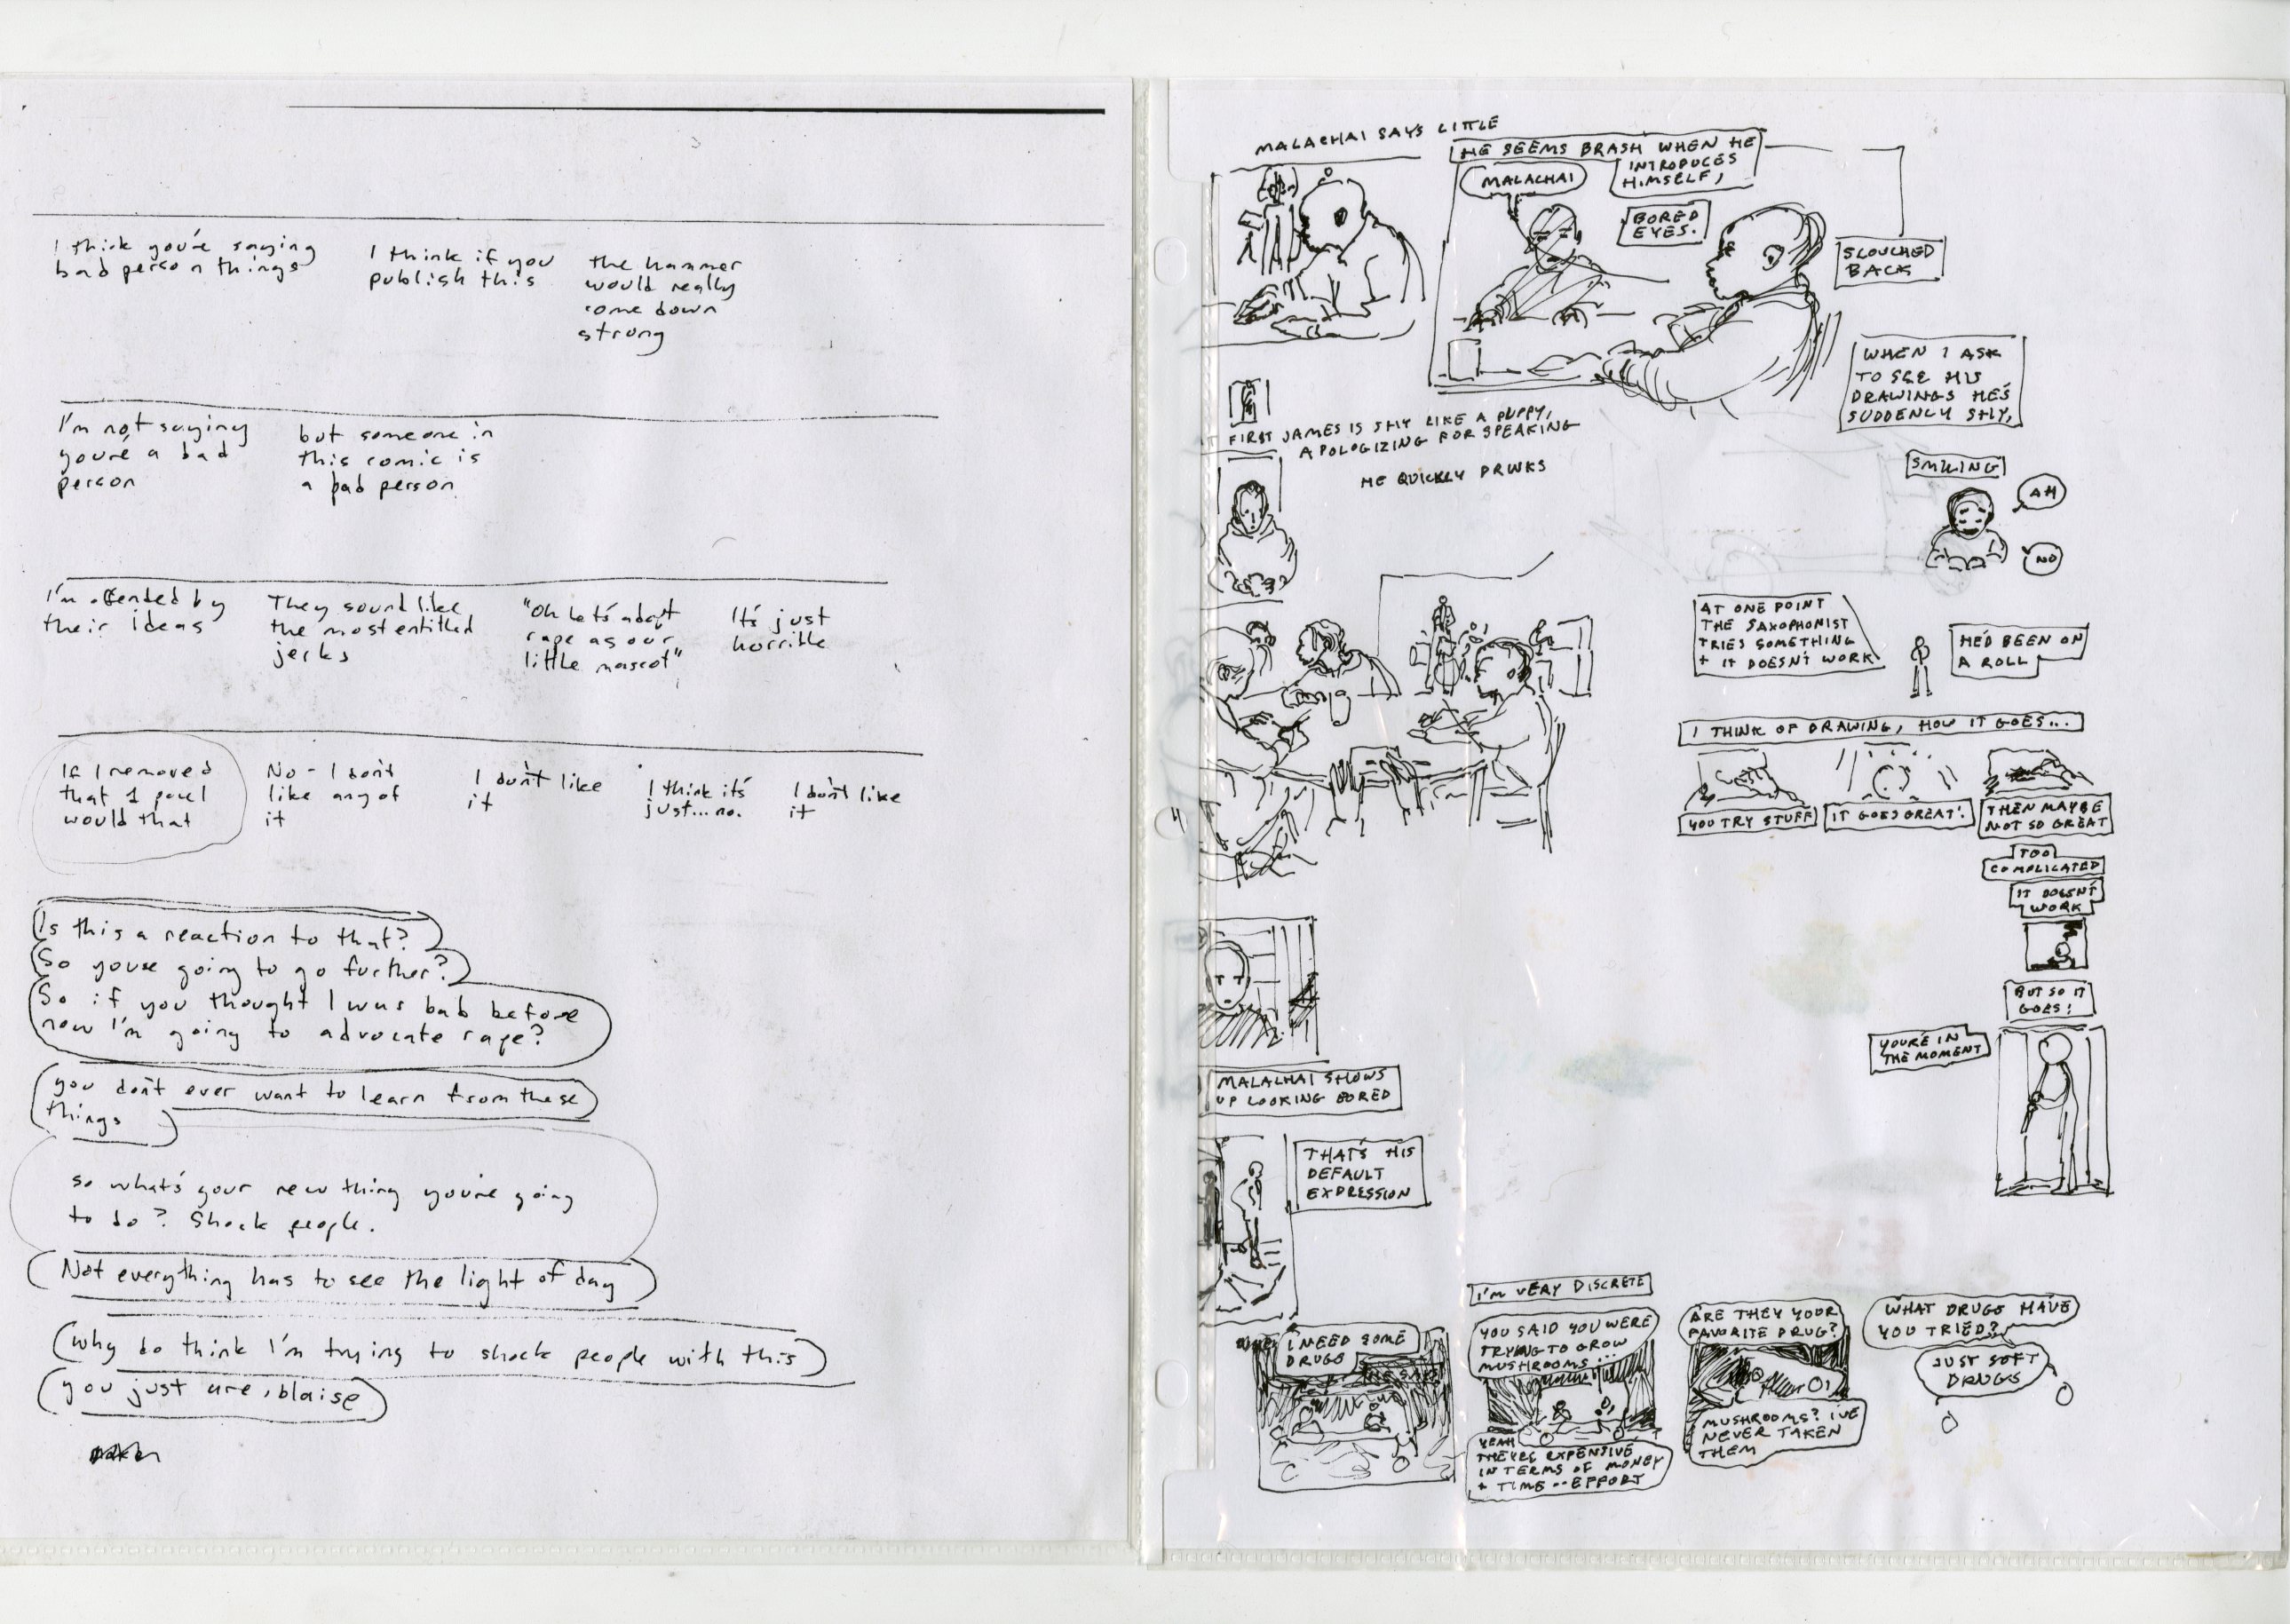 I think you're saying
bad person things
I think if you
publish this
the hammer
would really
come down
strong
I'm not saying
you're a bad
person
but someone in
this comic is
a bad person
I'm offended by
their ideas
They sound like
the most entitled
jerks
"Oh let's adopt
rape as our
little mascot"
It's just
horrible
If I removed
that 1 panel
would that
No - I don't
like any of
it
I don't like
it
I think it's
just... no.
I don't like
it
Is this a reaction to that?
So youre going to go further?
So if you thought I was bad before
now I'm going to advocate rape?
you don't ever want to learn from these
things
so what's your new thing you're going
to do? Shock people.
Not everything has to see the light of day
why do think I'm trying to shock people with this
you just are, blaise
MALACHAI SAYS LITTLE
HE SEEMS BRASH WHEN HE
INTRODUCES
HIMSELF,
MALACHAI
BORED
EYES.
SLOUCHED
BACK
WHEN I ASK
TO SEE HIS
DRAWINGS HE'S
SUDDENLY SHY,
SMILING
AH
NO
T FIRST JAMES IS SHY LIKE A PUPPY,
APOLOGIZING FOR SPEAKING
HE QUICKLY DRINKS
AT ONE POINT
THE SAXOPHONIST
TRIES SOMETHING
+ IT DOESN'T WORK
HE'D BEEN ON
A ROLL
I THINK OF DRAWING, HOW IT GOES...
YOU TRY STUFF
IT GOES GREAT!
THEN MAYBE
NOT SO GREAT
TOO
COMPLICATED
IT DOESN'T
WORK
BUT SO IT
GOES!
YOU'RE IN
THE MOMENT
MALACHAI SHOWS
UP LOOKING BORED
THAT'S HIS
DEFAULT
EXPRESSION
I NEED SOME
DRUGS
I'M VERY DISCRETE
YOU SAID YOU WERE
TRYING TO GROW
MUSHROOMS...
YEAH
THEY'RE EXPENSIVE
IN TERMS OF MONEY
+ TIME -- EFFORT
ARE THEY YOUR
FAVORITE DRUG?
MUSHROOMS? I'VE
NEVER TAKEN
THEM
WHAT DRUGS HAVE
YOU TRIED?
JUST SOFT
DRUGS